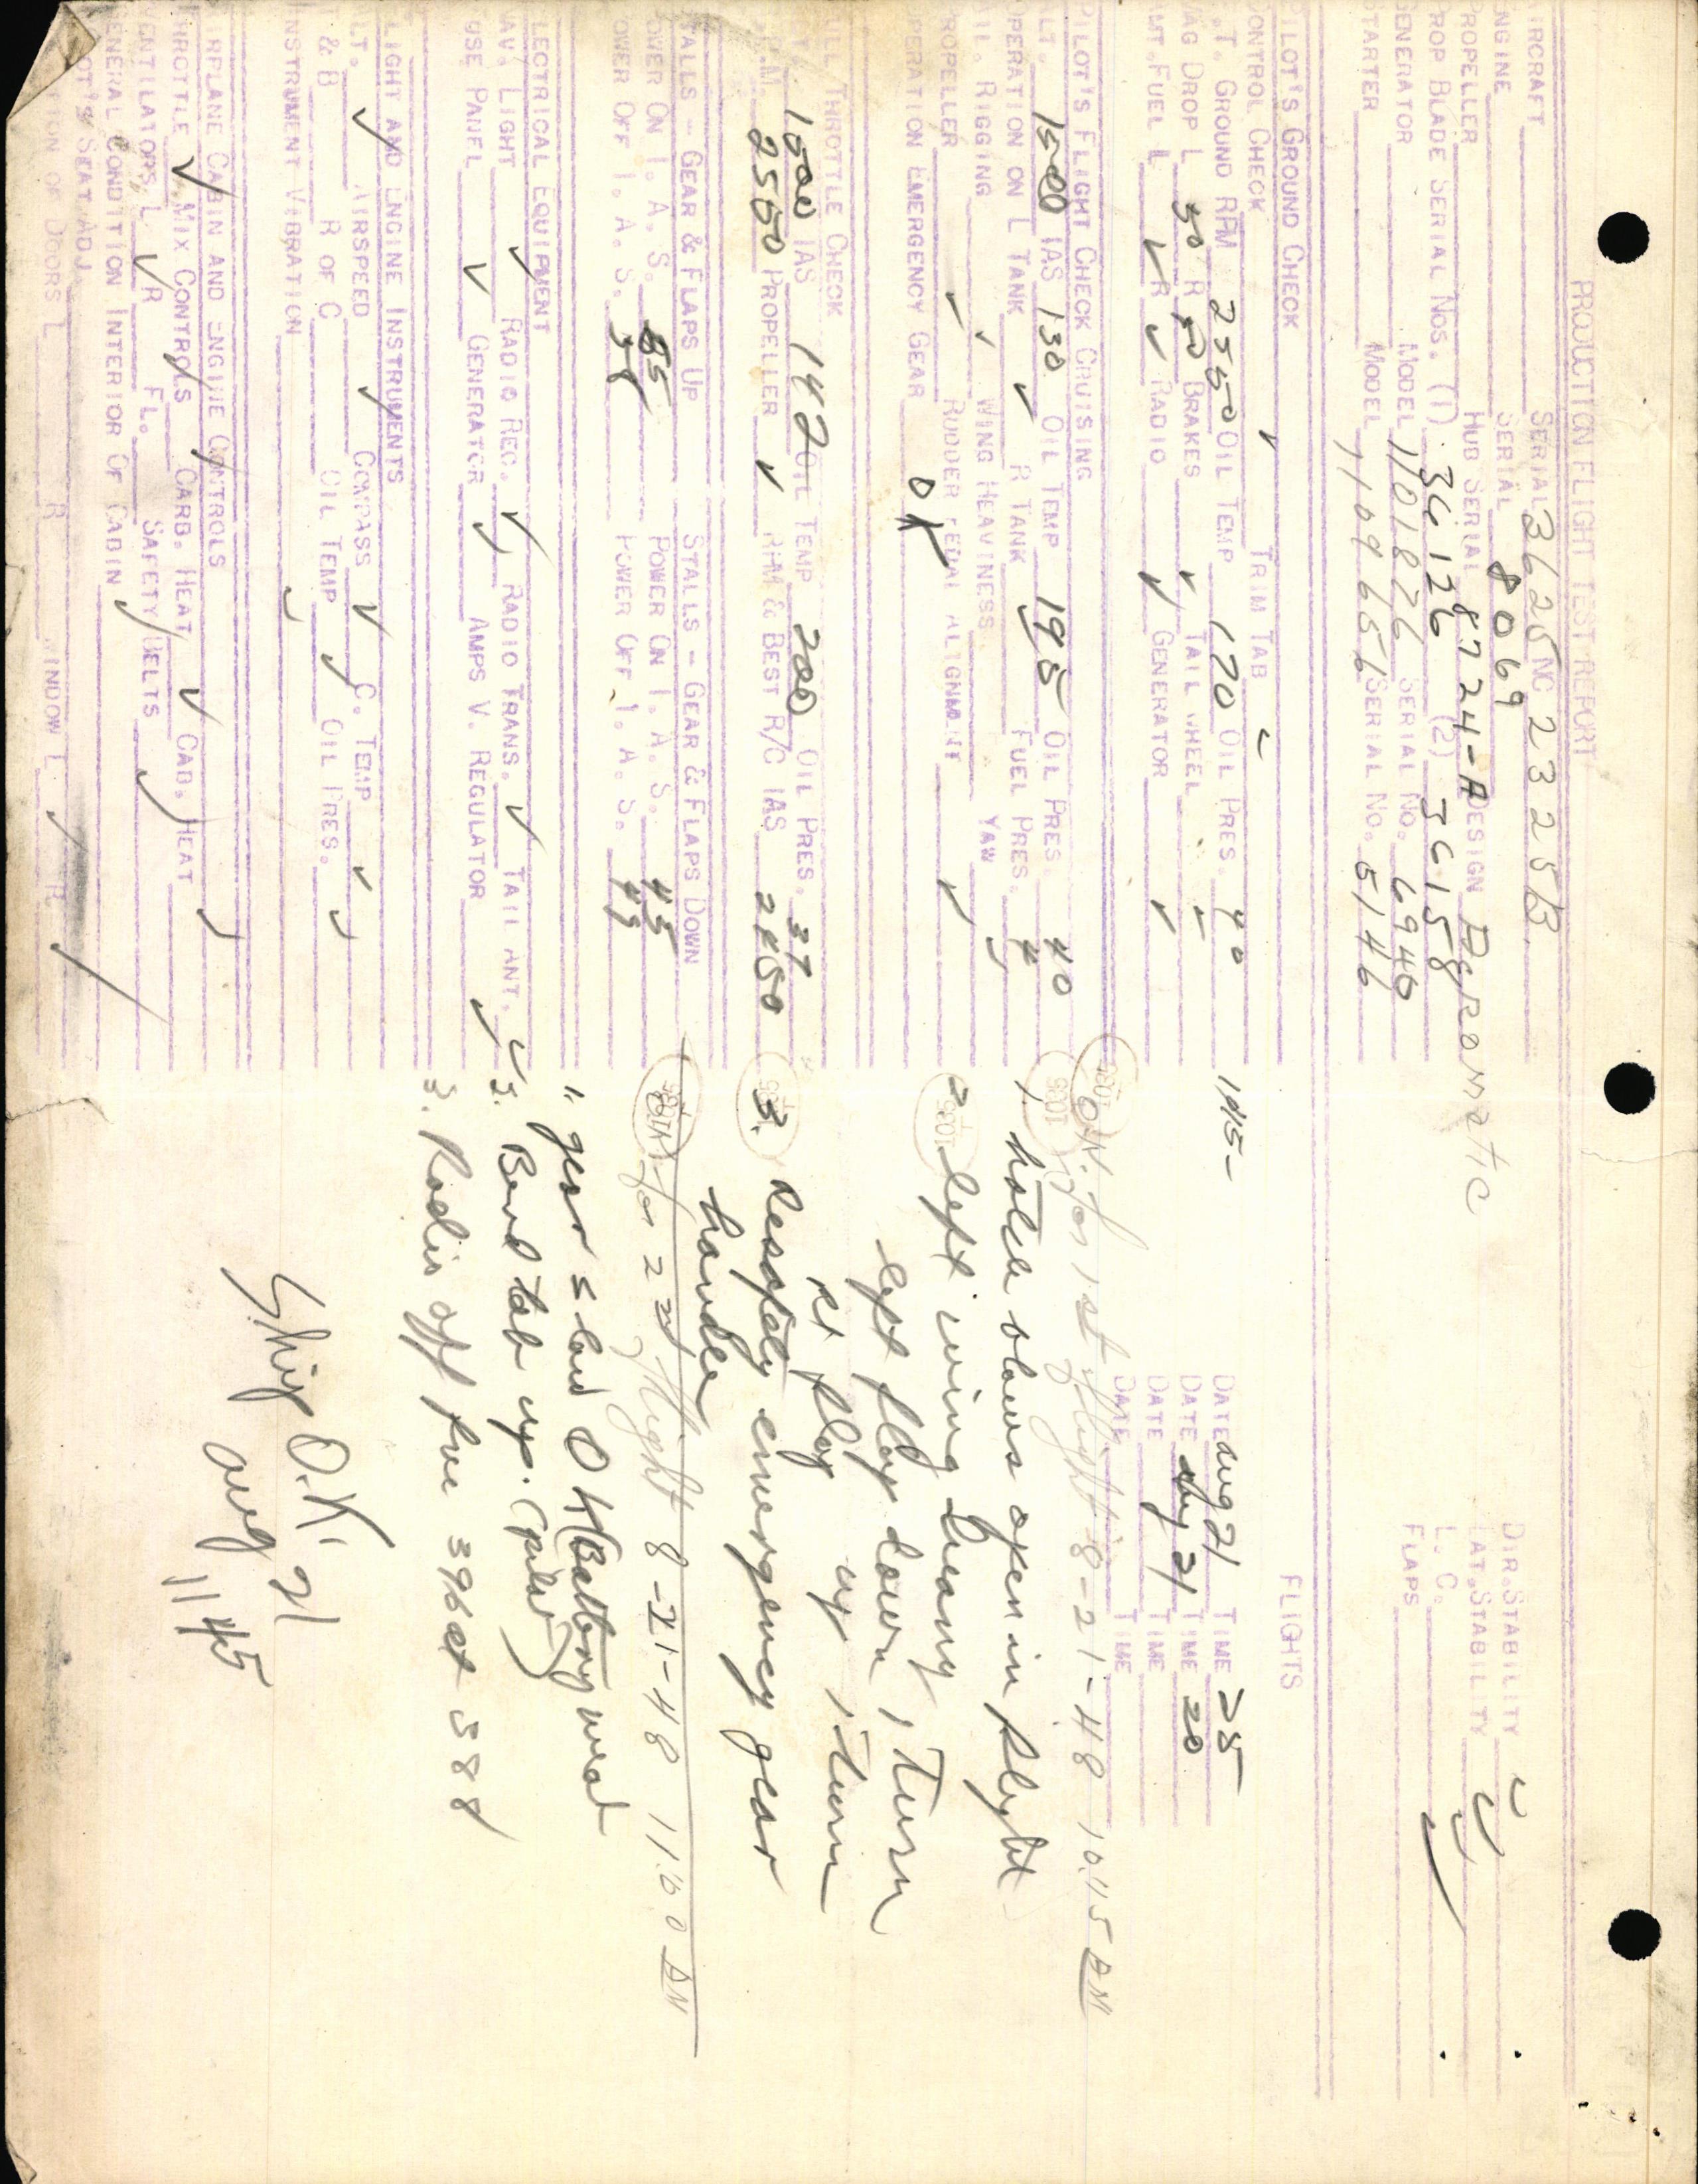 PRODUCTION FLIGHT TEST REPORT
AIRCRAFT SERIAL 3625 NC 23325B DIR. STABILITY ✓
ENGINE SERIAL 8069 LAT. STABILITY ✓
PROPELLER HUB SERIAL 8724-A DESIGN Aeromatic L. C.
PROP BLADE SERIAL NOS. (1) 36126 (2) 36158 FLAPS
GENERATOR MODEL 1101876 SERIAL NO. 6946
STARTER MODEL 1109656 SERIAL NO. 5146
PILOT'S GROUND CHECK FLIGHTS
CONTROL CHECK ✓ TRIM TAB ✓
S.T. GROUND RPM 2550 OIL TEMP 170 OIL PRES. 40 1415- DATE Aug 21 TIME 35
MAG DROP L 50 R 50 BRAKES ✓ TAIL WHEEL DATE Aug 21 TIME 20
AMT. FUEL L ✓ R ✓ RADIO ✓ GENERATOR ✓ DATE TIME
DATE TIME
PILOT'S FLIGHT CHECK CRUISING
ALT. 1500 IAS 130 OIL TEMP 195 OIL PRES. 40
OPERATION ON L TANK ✓ R TANK FUEL PRES. 4
AIL. RIGGING ✓ WING HEAVINESS YAW ✓
PROPELLER ✓ RUDDER PEDAL ALIGNMENT ✓
OPERATION EMERGENCY GEAR OK
FULL THROTTLE CHECK
ALT. 1500 IAS 142 OIL TEMP 200 OIL PRES. 37
R.P.M. 2550 PROPELLER ✓ RPM & BEST R/C IAS 2450
STALLS - GEAR & FLAPS UP STALLS - GEAR & FLAPS DOWN
POWER ON I. A. S. 55 POWER ON I. A. S. 45
POWER OFF I. A. S. 58 POWER OFF I. A. S. 49
ELECTRICAL EQUIPMENT
NAV. LIGHT ✓ RADIO REC. ✓ RADIO TRANS. ✓ TAIL ANT. ✓
FUSE PANEL ✓ GENERATOR ✓ AMPS V. REGULATOR ✓
FLIGHT AND ENGINE INSTRUMENTS
ALT. ✓ AIRSPEED ✓ COMPASS ✓ C. TEMP ✓
T & B R OF C OIL TEMP ✓ OIL PRES. ✓
INSTRUMENT VIBRATION ✓
AIRPLANE CABIN AND ENGINE CONTROLS
THROTTLE ✓ MIX CONTROLS ✓ CARB. HEAT ✓ CAB. HEAT ✓
VENTILATORS L ✓ R FL. SAFETY BELTS ✓
GENERAL CONDITION INTERIOR OF CABIN
PILOT'S SEAT ADJ.
DOORS L R WINDOW L ✓ R ✓
O.K. for 1st flight 8-21-48 10:45 AM
1. hatch blows open in flight
2. left wing heavy
left flap down 1 turn
Rt flap up 1 turn
3. Resafety emergency gear
handle
O.K. for 2nd flight 8-21-48 11:00 AM
1. gear s
Bend tab up. (pilot)
3. Radio off
Ship O.K.
Aug 21
1145